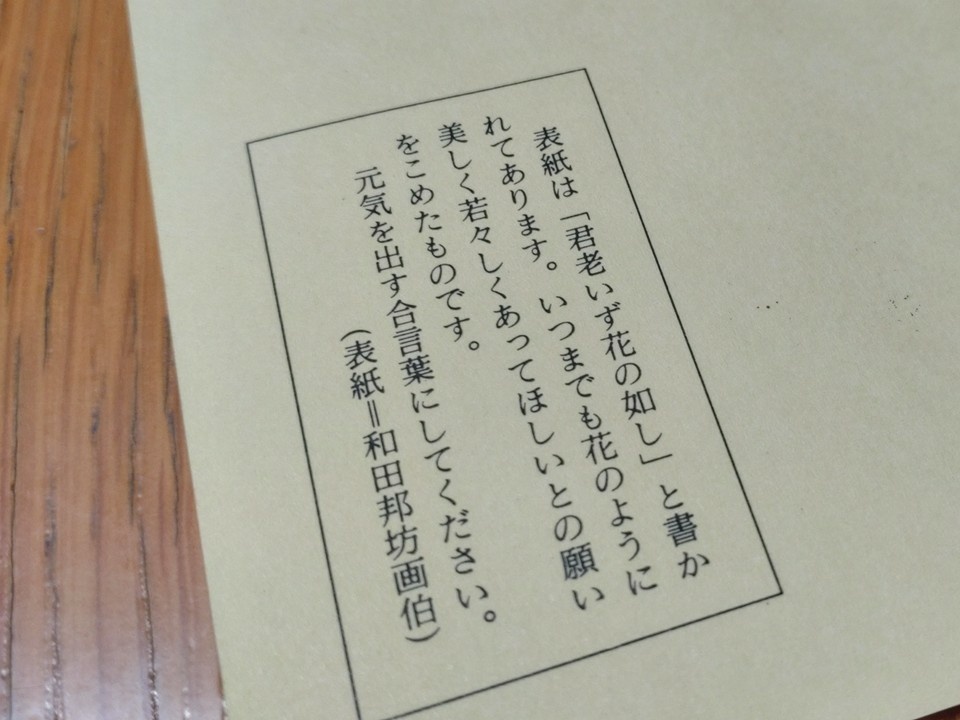 表紙は「君老いず花の如し」と書か
れてあります。いつまでも花のように
美しく若々しくあってほしいとの願い
をこめたものです。
元気を出す合言葉にしてください。
(表紙＝和田邦坊画伯)